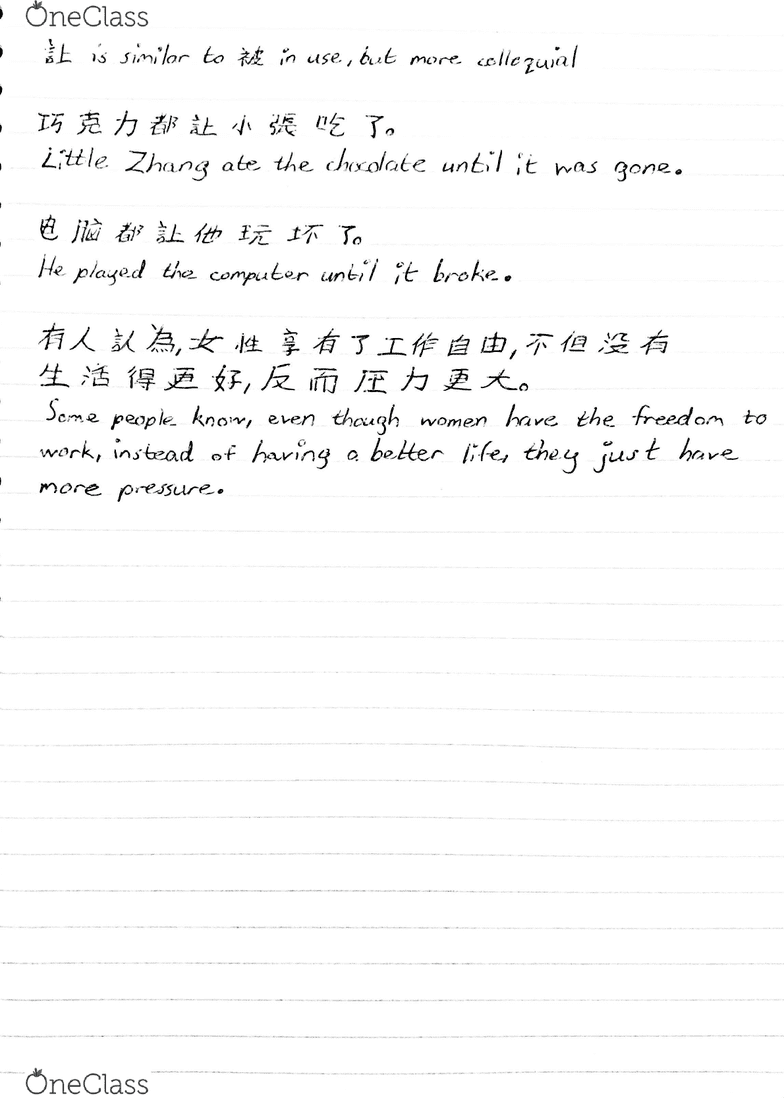 OneClass
訁上 is similar to 被 in use, but more colloquial
巧克力都讓小張吃了。
Little Zhang ate the chocolate until it was gone.
电脑都讓他玩坏了。
He played the computer until it broke.
有人認為,女性享有了工作自由,不但没有
生活得更好,反而压力更大。
Some people know, even though women have the freedom to
work, instead of having a better life, they just have
more pressure.
OneClass